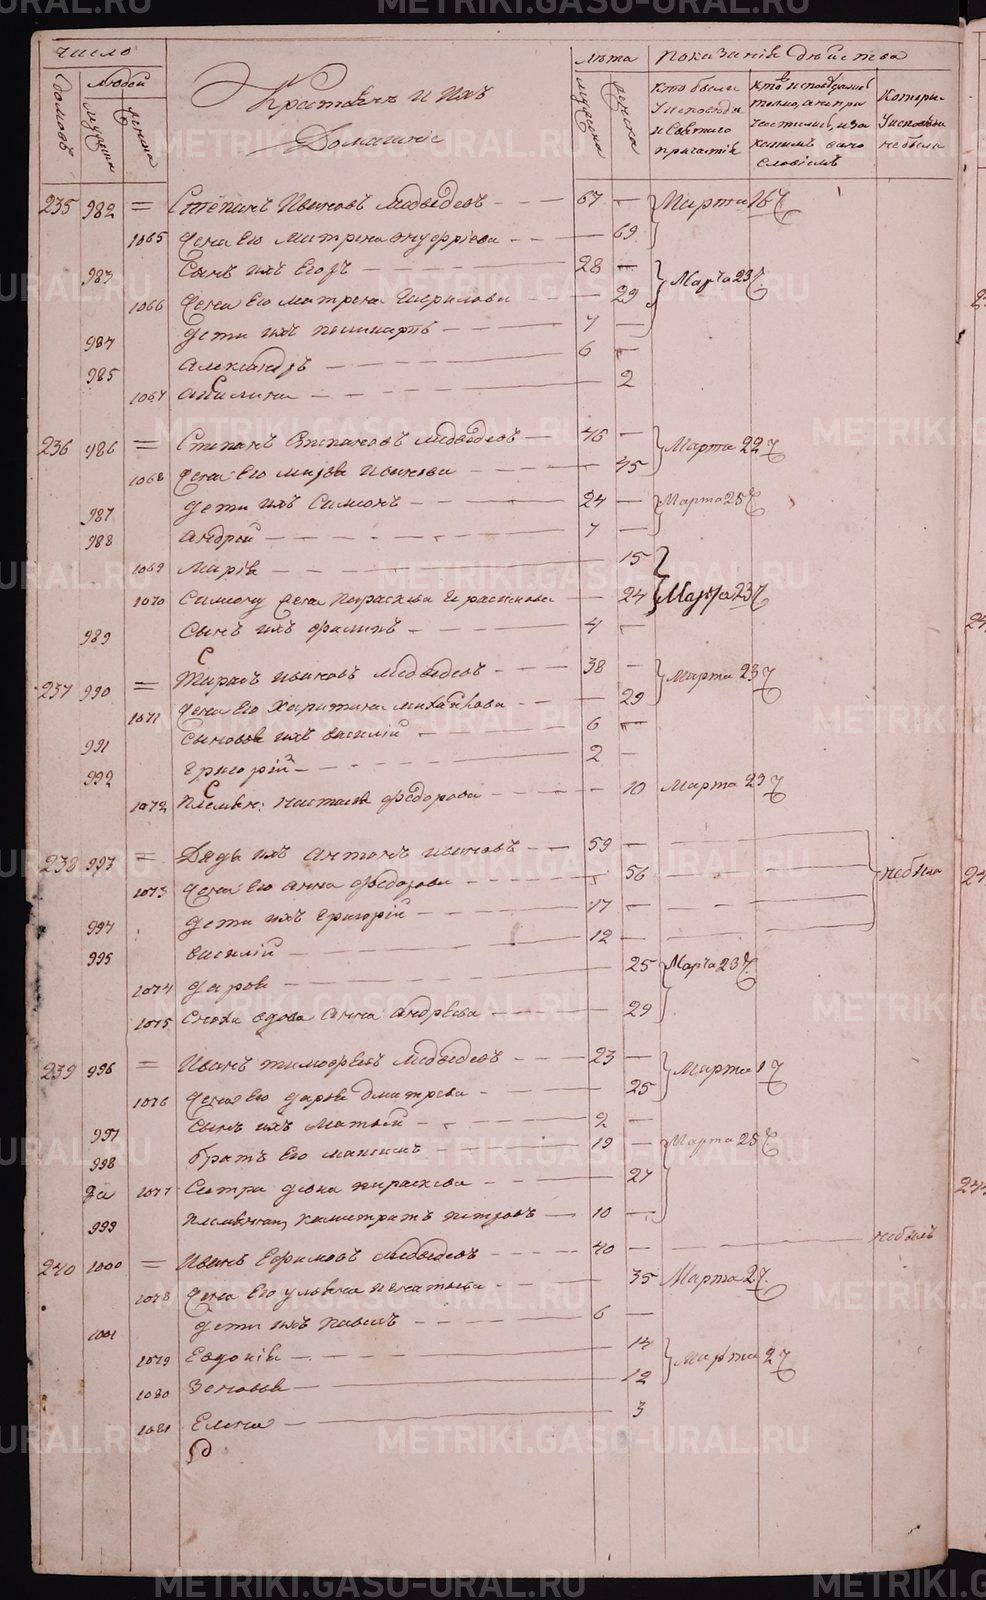 число
лѣта показаніе дѣйства
домовъ
людей
мужска
женска
Крестьянъ и ихъ
Домашніе
мужска
женска
кто были
у исповѣди
и святаго
причастія
кто исповѣдался
токмо, а не при
частился, и за
какимъ вино
словіемъ
Которые
у исповѣди
не были
235 982 = Степанъ Ивановъ Медведевъ 67 Марта 16 ч
1065 Жена Его Матрена Онуфріева 69
983 Сынъ ихъ Егоръ 28 Марта 23 ч
1066 Жена Его Матрена Гаврилова 29
984 Дети ихъ 7
985 Александръ 6
1067 2
236 986 = Степанъ Степановъ Медведевъ 46 Марта 22 ч
1068 Жена Его Марфа Иванова 45
987 Дети ихъ Симионъ 24 Марта 25 ч
988 Андрей 7
1069 Марія 15
1070 Симиону Жена Параскева 24 Марта 23 ч
989 Сынъ ихъ Филипъ 4
237 990 = Ивановъ Медведевъ 38 Марта 23 ч
1071 Жена Его Харитина Михайлова 29
991 Сыновья ихъ Василій 6
992 Григорій 2
1072 Племян: Настасья Федорова 10 Марта 23 ч
238 993 = Дядь ихъ Антонъ Ивановъ 59 небыли
1073 Жена Его Анна Федорова 56
994 Дети ихъ Григорій 17
995 Василій 12
1074 Дарья 25 Марта 23 ч
1075 Сноха вдова Анна Андрѣева 29
239 996 = Иванъ Тимофеевъ Медведевъ 23 Марта 1 ч
1076 Жена Его Дарья Дмитрева 25
997 Сынъ ихъ Матвей 2
998 Братъ Его Максимъ 19 Марта 25 ч
1077 Сестра девка Параскева 27
999 Племянникъ Калистратъ Петровъ 10
240 1000 = Иванъ Ефимовъ Медведевъ 40 небылъ
1078 Жена Его Ульяна Игнатьева 35 Марта 2 ч
1001 Дети ихъ Павелъ 6
1079 Евдокія 14 Марта 2 ч
1080 Зеновья 12
1081 Елена 3